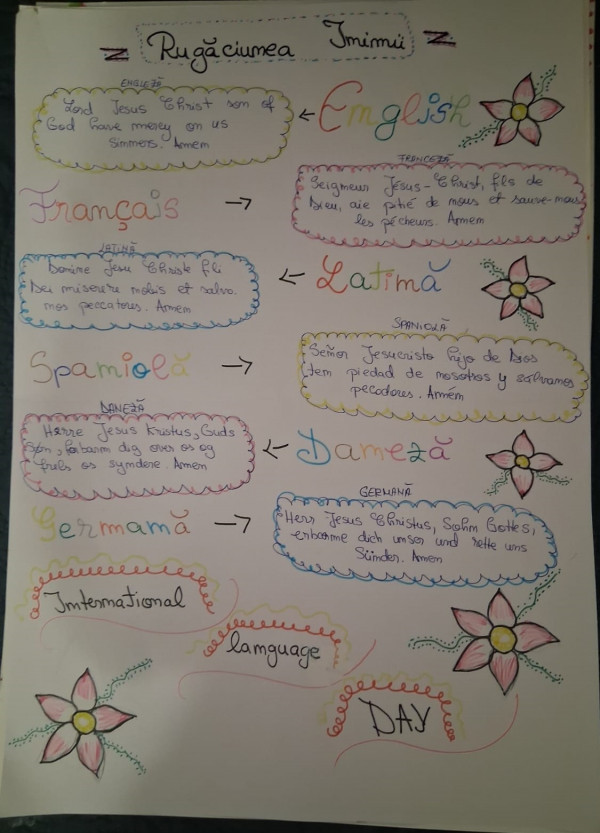 Rugăciunea Inimii
ENGLEZĂ
Lord Jesus Christ son of
God have mercy on us
Sinners. Amem
English
FRANCEZĂ
Seigneur Jésus-Christ, fils de
Dieu, aie pitié de nous et sauve-nous
les pécheurs. Amem
Français
LATINĂ
Domine Jesu Christe fili
Dei miserere nobis et salva
nos peccatores. Amem
Latină
SPANIOLĂ
Señor Jesucristo hijo de Dios
tem piedad de nosotros y salvamos
pecadores. Amém
Spaniolă
DANEZĂ
Herre Jesus Kristus, Guds
søn, forbarm dig over os og
frels os syndere. Amem
Daneză
GERMANĂ
Herr Jesus Christus, Sohn Gottes,
erbarme dich unser und rette uns
Sünder. Amen
Germană
International
language
DAY